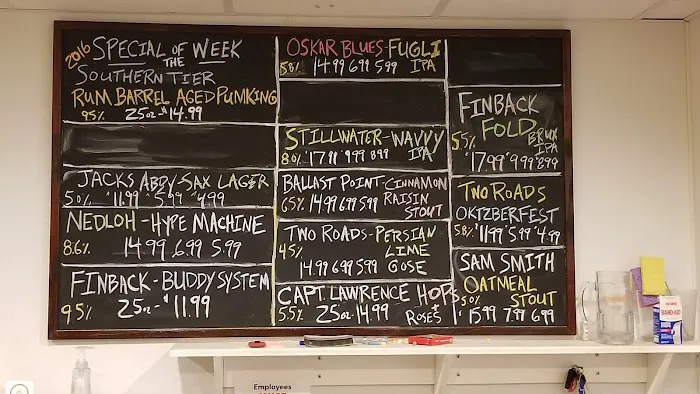 2016 SPECIAL OF THE WEEK
SOUTHERN TIER
RUM BARREL AGED PUMKING
9.5% 25oz - $14.99
JACKS ABBY - SAX LAGER
5.0% $11.99 $5.99 $4.99
NEDLOH - HYPE MACHINE
8.6% 14.99 6.99 5.99
FINBACK - BUDDY SYSTEM
9.5% 25oz - $11.99
OSKAR BLUES - FUGLI
5.8% 14.99 6.99 5.99 IPA
STILLWATER - WAVVY
8.0% $17.99 $9.99 8.99 IPA
BALLAST POINT - CINNAMON
6.5% 14.99 6.99 5.99 RAISIN
STOUT
TWO ROADS - PERSIAN
4.5% LIME
14.99 6.99 5.99 GOSE
CAPT. LAWRENCE HOPS
5.5% 25oz - 14.99 & ROSES
FINBACK
FOLD
5.5% BRUX
IPA
$17.99 $9.99 8.99
TWO ROADS
OKTZBERFEST
5.8% $11.99 $5.99 $4.99
SAM SMITH
OATMEAL
5.0% STOUT
$15.99 7.99 6.99
BAND-AID
Employees